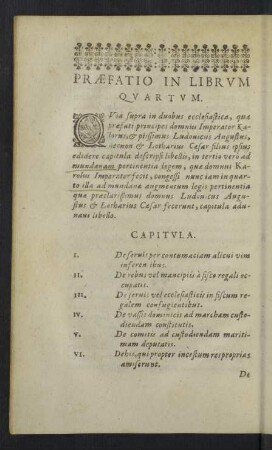 PRÆFATIO IN LIBRVM
QVARTVM.
QVia supra in duobus ecclesiastica, quæ
præfati principes domnus Imperator Ka-
rolus, & piissimus Ludouicus Augustus,
necnon & Lotharius Cæsar filius ipsius
edidere capitula descripsi libellis, in tertio verò ad
mundanam pertinentia legem, quæ domnus Ka-
rolus Imperator fecit, congessi: nunc iam in quar-
to illa ad mundanæ augmentum legis pertinentia
quæ præclarissimus domnus Ludouicus Augu-
stus & Lotharius Cæsar fecerunt, capitula adu-
nani libello.
CAPITVLA.
I. De seruis per contumaciam alicui vim
inferentibus.
II. De rebus vel mancipiis à fisco regali oc-
cupatis.
III. De seruis vel ecclesiasticis in fiscum re-
galem confugientibus.
IV. De vassis dominicis ad marcham custo-
diendam constitutis.
V. De comitib. ad custodiendam mariti-
mam deputatis.
VI. De his, qui propter incestum res proprias
amiserunt.
De